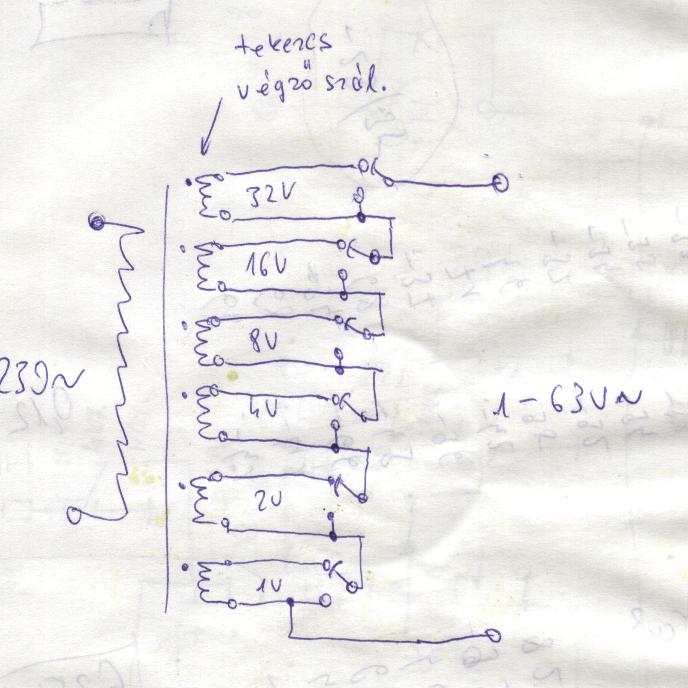 tekercs
végző szál.
32V
16V
8V
230~
4V
1-63V~
2V
1V